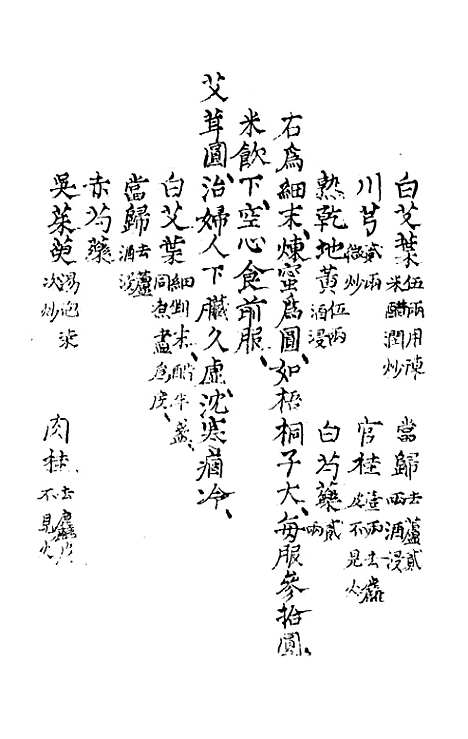 白艾葉伍兩用陳米醋潤炒 當歸去蘆貳兩酒浸
川芎貳兩微炒 官桂壹兩去麁皮不見火
熟乾地黃伍兩酒浸 白芍藥貳兩
右爲細末煉蜜爲圓如梧桐子大每服參拾圓
米飲下空心食前服
艾茸圓治婦人下臟久虛沈寒痼冷
白艾葉細剉米醋半盞同煮盡爲度
當歸去蘆酒浸
赤芍藥
吳茱萸湯泡柒次炒 肉桂去麁皮不見火